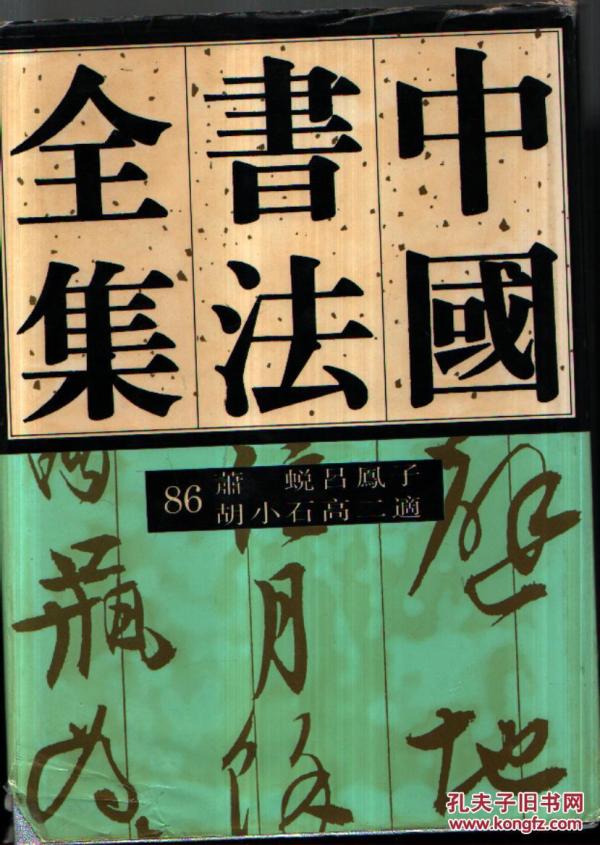 中國
書法
全集
86
蕭 蜕呂鳳子
胡小石高二適
月
地
瓶
为
孔夫子旧书网
www.kongfz.com